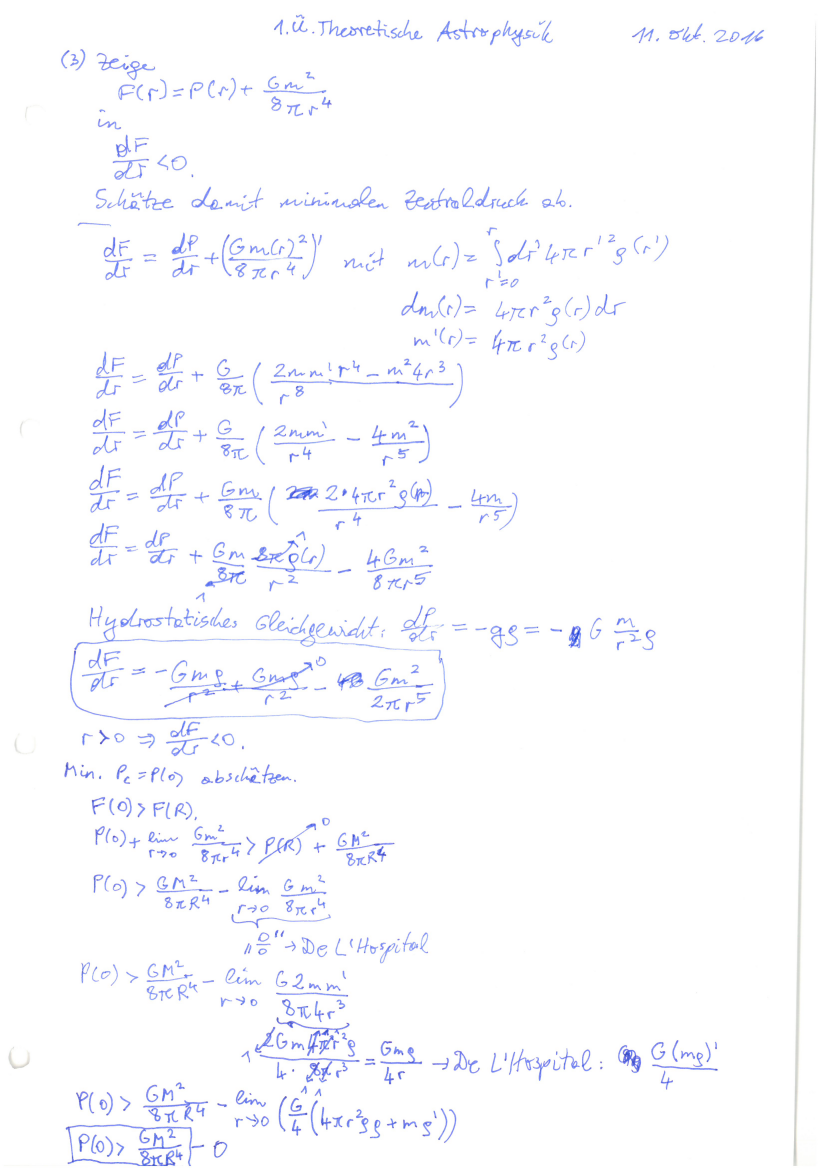 1.Ü. Theoretische Astrophysik 11. Okt. 2016
(3) Zeige
F(r) = P(r) + Gm²/(8πr⁴)
in
dF/dr < 0.
Schätze damit minimalen Zentraldruck ab.
dF/dr = dP/dr + (Gm(r)²/(8πr⁴))' mit m(r) = ∫_{r'=0}^{r} dr' 4πr'²ρ(r')
dm(r) = 4πr²ρ(r)dr
m'(r) = 4πr²ρ(r)
dF/dr = dP/dr + G/(8π) ((2mm'r⁴ - m²4r³)/r⁸)
dF/dr = dP/dr + G/(8π) (2mm'/r⁴ - 4m²/r⁵)
dF/dr = dP/dr + Gm/(8π) (2·4πr²ρ(r)/r⁴ - 4m/r⁵)
dF/dr = dP/dr + Gm/8π 8πρ(r)/r² - 4Gm²/(8πr⁵)
1 1
Hydrostatisches Gleichgewicht: dP/dr = -gρ = -G m/r² ρ
dF/dr = -Gmρ/r² + Gmρ/r² → 0 - Gm²/(2πr⁵)
r > 0 ⇒ dF/dr < 0.
Min. P_c = P(0) abschätzen.
F(0) > F(R).
P(0) + lim_{r→0} Gm²/(8πr⁴) > P(R) → 0 + GM²/(8πR⁴)
P(0) > GM²/(8πR⁴) - lim_{r→0} Gm²/(8πr⁴)
„0/0" → De L'Hospital
P(0) > GM²/(8πR⁴) - lim_{r→0} G2mm'/(8π4r³)
2Gm4πr²ρ/(4·8πr³) = Gmρ/(4r) → De L'Hospital: G(mρ)'/4
P(0) > GM²/(8πR⁴) - lim_{r→0} (G/4 (4πr²ρρ + mρ'))
P(0) > GM²/(8πR⁴) - 0